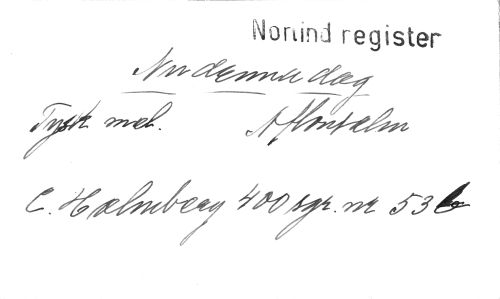 Nonind register
Nu denna dag
Tysk mel. Aftonsalm
C. Holmberg 400 sgr. nr 53 b